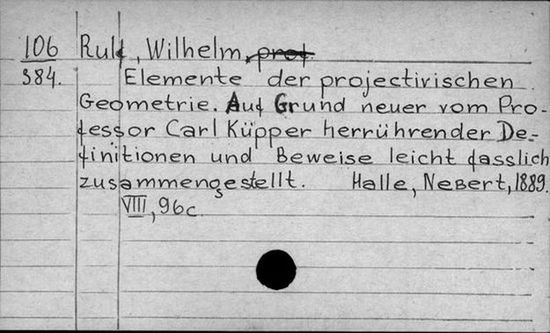 106 Rulf, Wilhelm, prof.
384. Elemente der projectivischen
Geometrie. Auf Grund neuer vom Pro-
fessor Carl Küpper herrührender De-
finitionen und Beweise leicht fasslich
zusammengestellt. Halle, Nebert, 1889.
VIII, 96c